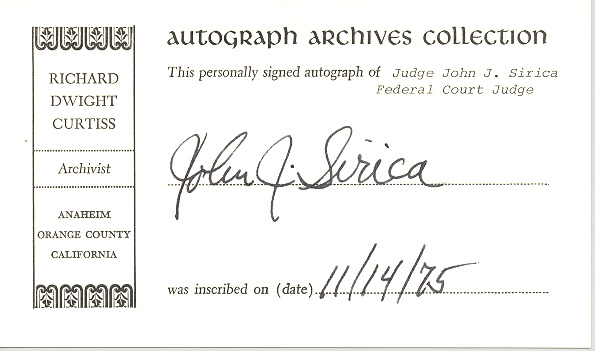 AUTOGRAPH ARCHIVES COLLECTION
RICHARD
DWIGHT
CURTISS
Archivist
ANAHEIM
ORANGE COUNTY
CALIFORNIA
This personally signed autograph of Judge John J. Sirica
Federal Court Judge
John J. Sirica
was inscribed on (date) 11/14/75